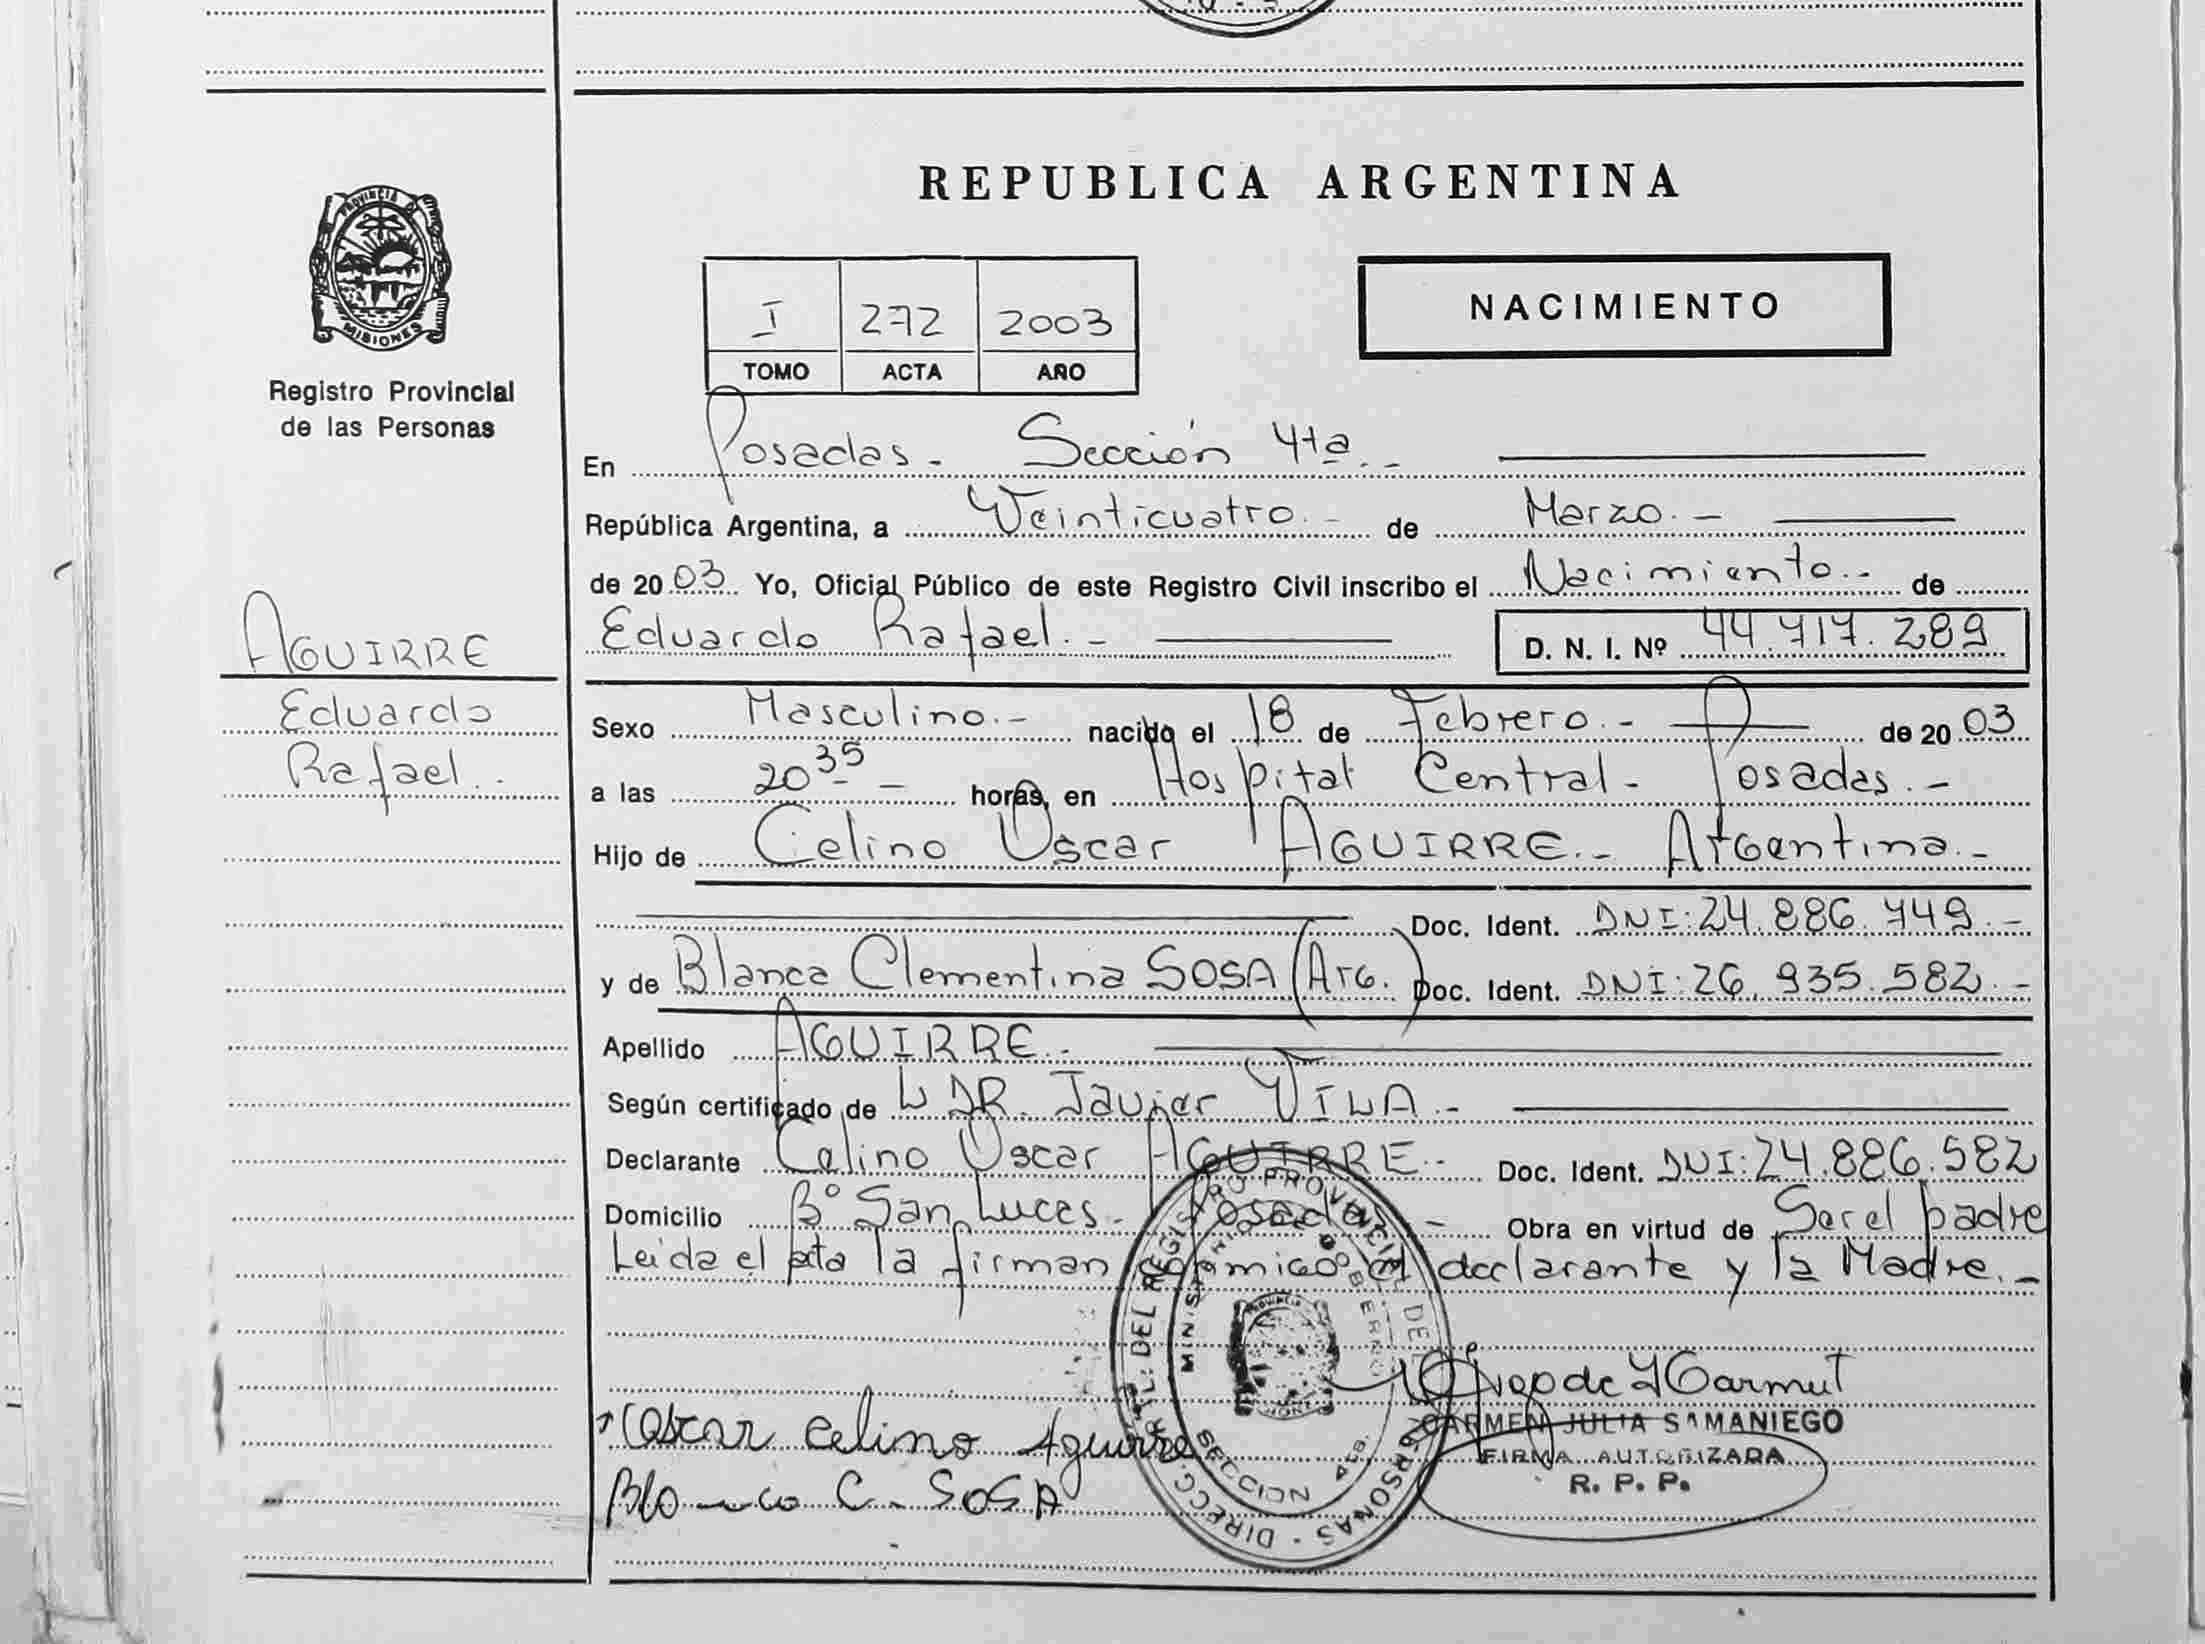 REPUBLICA ARGENTINA
PROVINCIA DE
MISIONES
Registro Provincial
de las Personas
I 272 2003
TOMO ACTA AÑO
NACIMIENTO
En Posadas.- Sección 4ta.-
República Argentina, a Veinticuatro.- de Marzo.-
de 2003 Yo, Oficial Público de este Registro Civil inscribo el Nacimiento.- de
Eduardo Rafael.- D. N. I. Nº 44.717.289
AGUIRRE
Eduardo
Rafael.
Sexo Masculino.- nacido el 18 de Febrero.- de 2003
a las 20 35 - horas, en Hospital Central - Posadas.-
Hijo de Celino Oscar AGUIRRE.- Argentina.-
Doc. Ident. DNI: 24.886.449.-
y de Blanca Clementina SOSA (Arg.) Doc. Ident. DNI: 26.935.582.-
Apellido AGUIRRE.-
Según certificado de L DR. Javier VILA.-
Declarante Celino Oscar AGUIRRE.- Doc. Ident. DNI: 24.886.582
Domicilio Bº San Lucas. Posadas.- Obra en virtud de Ser el padre
Leida el acta la firman conmigo el declarante y la Madre.-
DIRECC. GRAL. DEL REGISTRO PROVINCIAL DE LAS PERSONAS
MINISTERIO DE GOBIERNO
SECCION 4ta.
Oscar Celino Aguirre
Blanca C. SOSA
CARMEN JULIA SAMANIEGO
FIRMA AUTORIZADA
R. P. P.